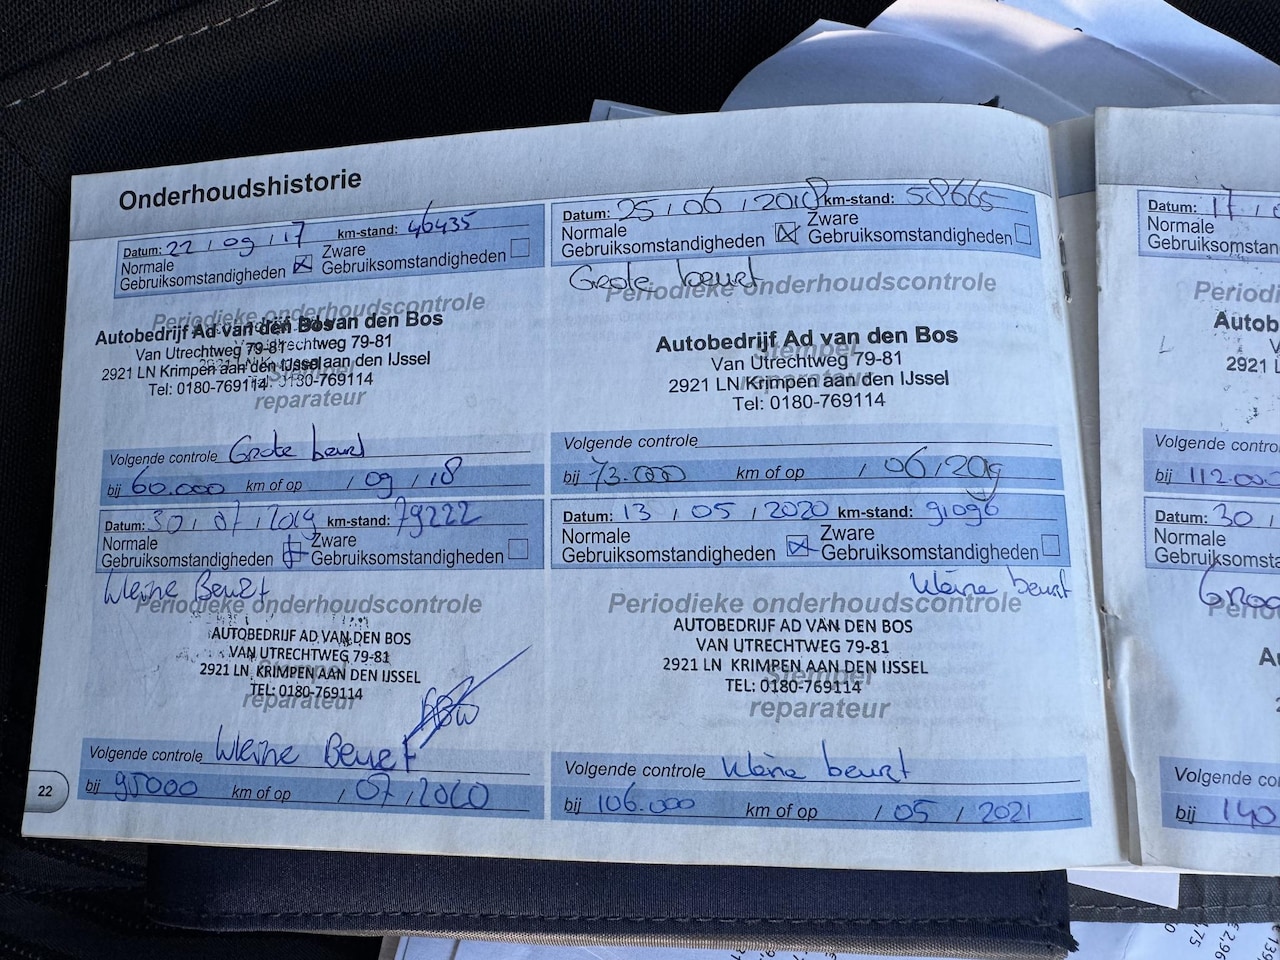 Onderhoudshistorie
Datum: 22 / 09 / 17 km-stand: 46435
Normale Gebruiksomstandigheden ☒ Zware Gebruiksomstandigheden ☐
Periodieke onderhoudscontrole
Autobedrijf Ad van den Bos
Van Utrechtweg 79-81
2921 LN Krimpen aan den IJssel
Tel: 0180-769114
Stempel
reparateur
Volgende controle Grote beurt
bij 60.000 km of op / 09 / 18
Datum: 25 / 06 / 2018 km-stand: 58665
Normale Gebruiksomstandigheden ☒ Zware Gebruiksomstandigheden ☐
Grote beurt
Periodieke onderhoudscontrole
Autobedrijf Ad van den Bos
Van Utrechtweg 79-81
2921 LN Krimpen aan den IJssel
Tel: 0180-769114
Stempel
reparateur
Volgende controle
bij 73.000 km of op / 06 / 2019
Datum: 30 / 07 / 2019 km-stand: 79222
Normale Gebruiksomstandigheden Zware Gebruiksomstandigheden ☐
Kleine Beurt
Periodieke onderhoudscontrole
AUTOBEDRIJF AD VAN DEN BOS
VAN UTRECHTWEG 79-81
2921 LN KRIMPEN AAN DEN IJSSEL
TEL: 0180-769114
Stempel
reparateur
Volgende controle Kleine Beurt
bij 95000 km of op / 07 / 2020
22
Datum: 13 / 05 / 2020 km-stand: 91096
Normale Gebruiksomstandigheden ☒ Zware Gebruiksomstandigheden ☐
Kleine beurt
Periodieke onderhoudscontrole
AUTOBEDRIJF AD VAN DEN BOS
VAN UTRECHTWEG 79-81
2921 LN KRIMPEN AAN DEN IJSSEL
TEL: 0180-769114
Stempel
reparateur
Volgende controle Kleine beurt
bij 106.000 km of op / 05 / 2021
Datum: 17 /
Normale
Gebruiksomstan
Periodi
Autob
2921 L
Te
Volgende contro
bij 112.000
Datum: 30 /
Normale
Gebruiksomsta
Groo
Perio
Volgende co
bij 140